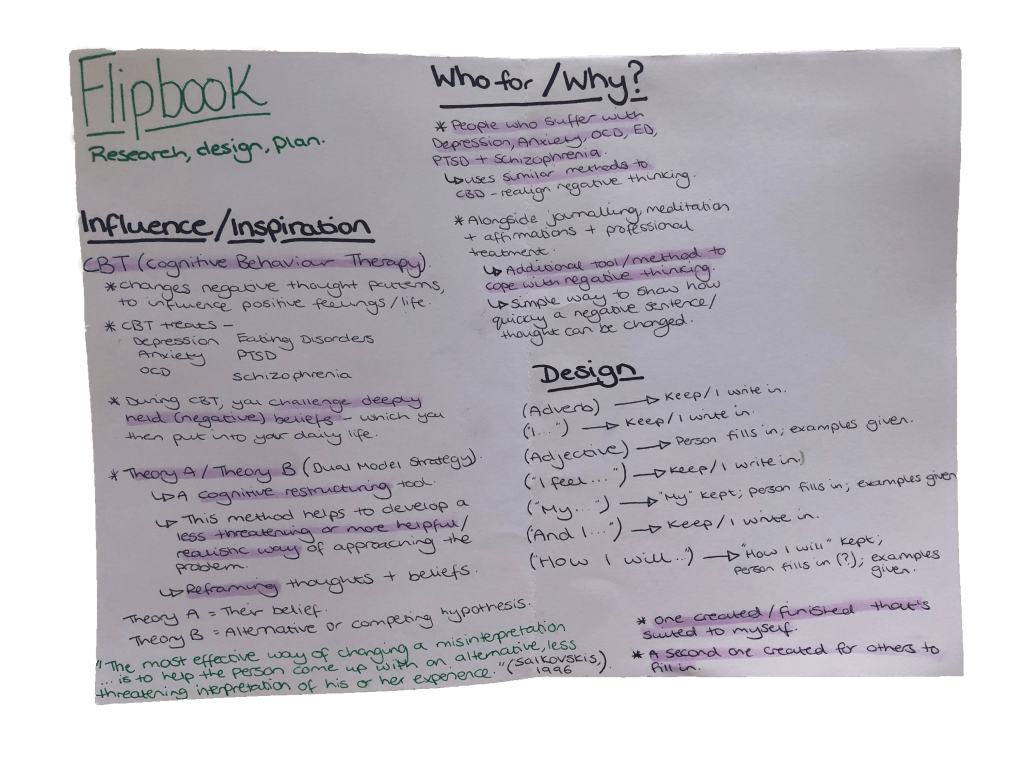 Flipbook
Research, design, plan.
Influence/Inspiration
CBT (Cognitive Behaviour Therapy)
* Changes negative thought patterns,
to influence positive feelings/life.
* CBT treats –
Depression Eating Disorders
Anxiety PTSD
OCD Schizophrenia
* During CBT, you challenge deeply
held (negative) beliefs – which you
then put into your daily life.
* Theory A / Theory B (Dual Model Strategy).
↳ A cognitive restructuring tool.
↳ This method helps to develop a
less threatening or more helpful/
realistic way of approaching the
problem.
↳ Reframing thoughts + beliefs.
Theory A = Their belief.
Theory B = Alternative or competing hypothesis.
"The most effective way of changing a misinterpretation
... is to help the person come up with an alternative, less
threatening interpretation of his or her experience." (Salkovskis,
1996).
Who for / Why?
* People who suffer with
Depression, Anxiety, OCD, ED,
PTSD + Schizophrenia.
↳ uses similar methods to
CBD – realign negative thinking.
* Alongside journalling, meditation
+ affirmations + professional
treatment.
↳ Additional tool/method to
cope with negative thinking.
↳ Simple way to show how
quickly a negative sentence/
thought can be changed.
Design
(Adverb) → Keep/I write in.
("I...") → Keep/I write in.
(Adjective) → Person fills in; examples given.
("I feel...") → Keep/I write in.
("My....") → "My" kept; person fills in; examples given
(And I...") → Keep/I write in.
("How I will..") → "How I will" kept;
person fills in (?); examples
given.
* One created/finished that's
suited to myself.
* A second one created for others to
fill in.